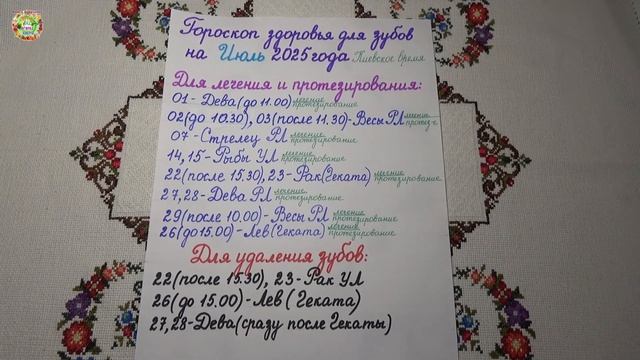 Гороскоп здоровья для зубов
на Июль 2025 года Киевское время
Для лечения и протезирования:
01 - Дева (до 11.00) лечение протезирование
02 (до 10.30), 03 (после 11.30) - Весы РЛ лечение протез-е
07 - Стрелец РЛ лечение протезирование
14, 15 - Рыбы УЛ лечение протезирование
22 (после 15.30), 23 - Рак (Геката) лечение протезирование
27, 28 - Дева РЛ лечение протезирование
29 (после 10.00) - Весы РЛ лечение протезирование
26 (до 15.00) - Лев (Геката) лечение протезирование
Для удаления зубов:
22 (после 15.30), 23 - Рак УЛ
26 (до 15.00) - Лев (Геката)
27, 28 - Дева (сразу после Гекаты)